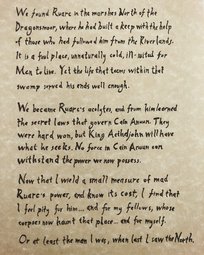 We found Ruarc in the marshes North of the
Dragonsmoor, where he had built a keep with the help
of those who had followed him from the Riverlands.
It is a foul place, unnaturally cold, ill-suited for
Men to live. Yet the life that teems within that
swamp served his ends well enough.
We became Ruarc's acolytes, and from him learned
the secret laws that govern Cain Anuun. They
were hard won, but King Aeldhdjohn will have
what he seeks. No force in Cain Anuun can
withstand the power we now possess.
Now that I wield a small measure of mad
Ruarc's power, and know its cost, I find that
I feel pity for him... and for my fellows, whose
corpses now haunt that place... and for myself.
Or at least the man I was, when last I saw the North.